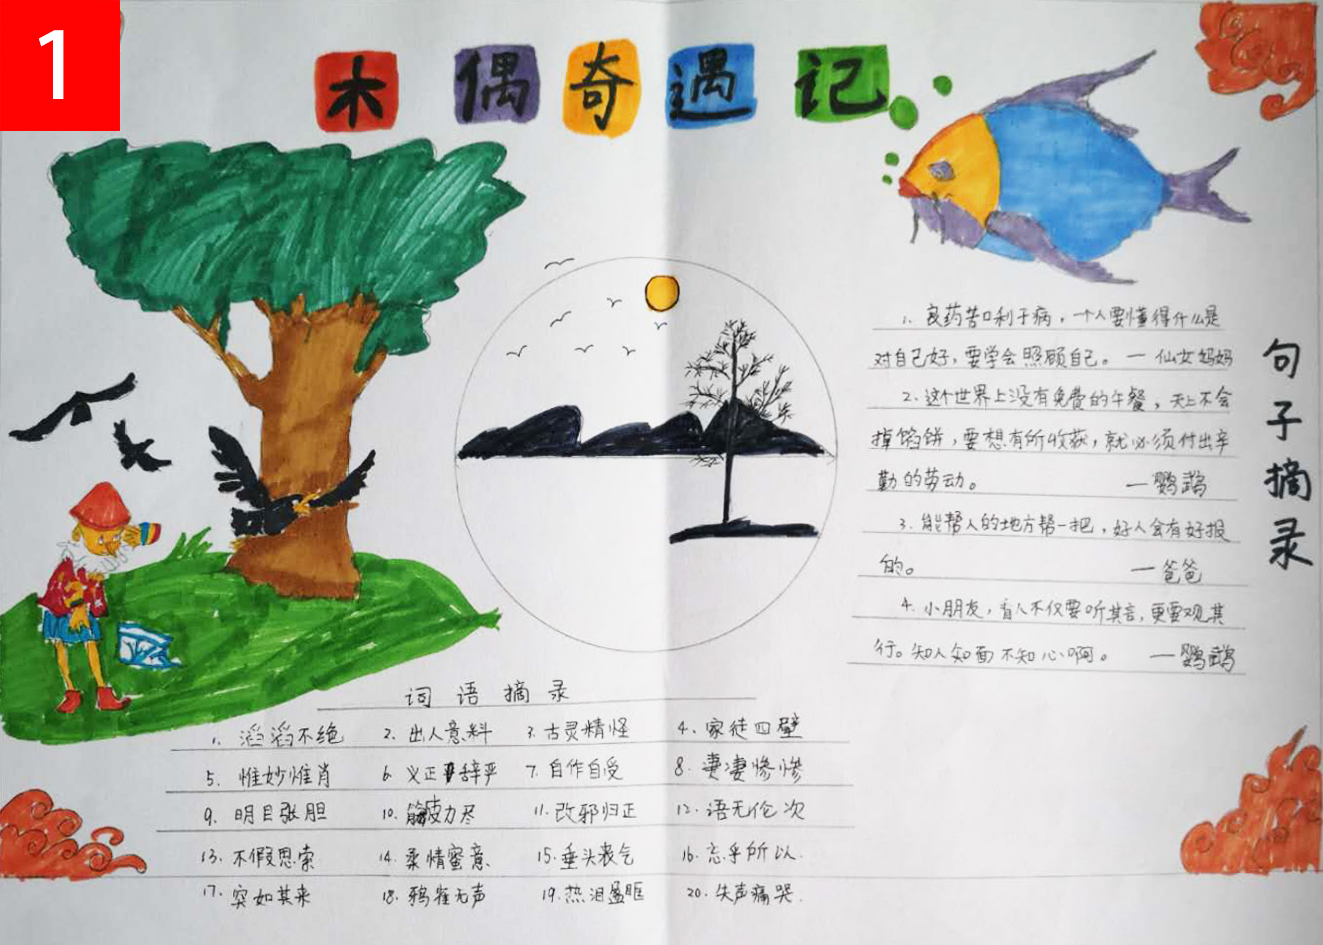 1
木偶奇遇记
句子摘录
1. 良药苦口利于病，一个人要懂得什么是
对自己好，要学会照顾自己。— 仙女妈妈
2. 这个世界上没有免费的午餐，天上不会
掉馅饼，要想有所收获，就必须付出辛
勤的劳动。 —鹦鹉
3. 能帮人的地方帮一把，好人会有好报
的。 —爸爸
4. 小朋友，看人不仅要听其言，更要观其
行。知人知面不知心啊。 —鹦鹉
词语摘录
1. 滔滔不绝 2. 出人意料 3. 古灵精怪 4. 家徒四壁
5. 惟妙惟肖 6. 义正辞严 7. 自作自受 8. 凄凄惨惨
9. 明目张胆 10. 筋疲力尽 11. 改邪归正 12. 语无伦次
13. 不假思索 14. 柔情蜜意 15. 垂头丧气 16. 忘乎所以.
17. 突如其来 18. 鸦雀无声 19. 热泪盈眶 20. 失声痛哭.